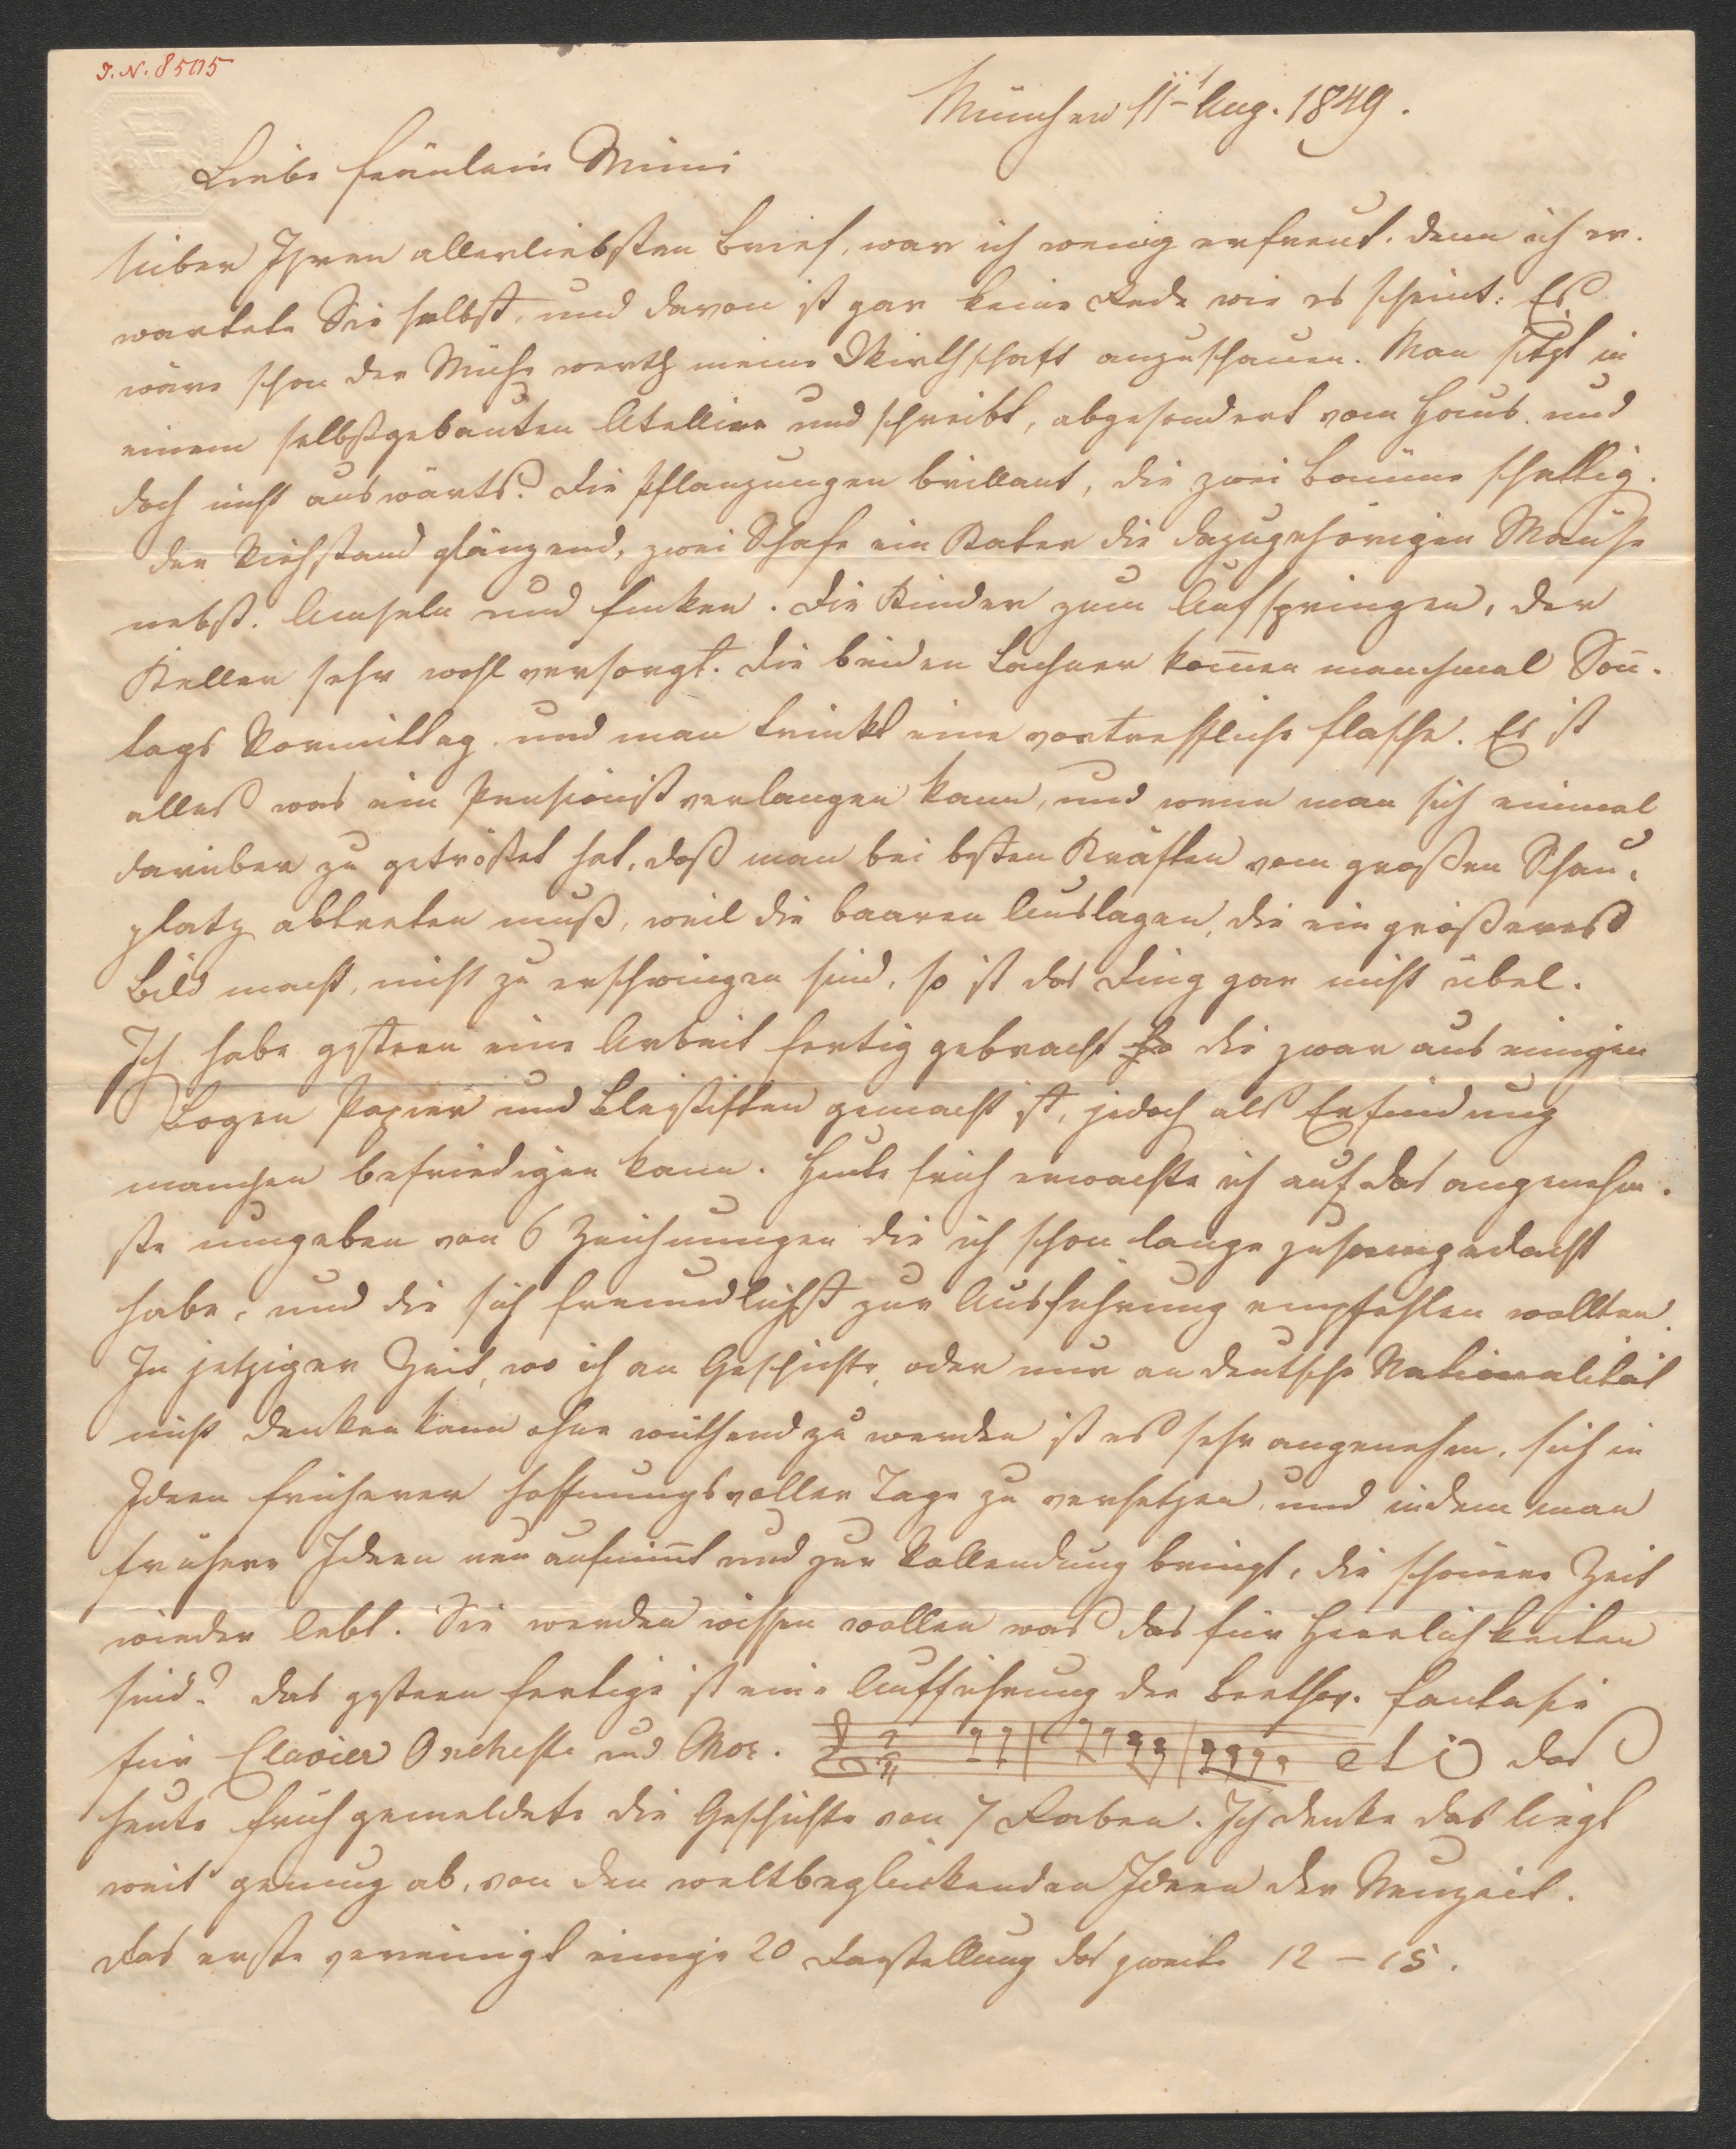 J. N. 8505
München 11t Aug. 1849.
Liebe Fräulein Mimi
Über Ihren allerliebsten Brief, war ich wenig erfreut. denn ich er-
wartete Sie selbst, und davon ist gar keine Rede wie es scheint: Es
wäre schon der Mühe werth meine Wirthschaft anzuschauen. Man sitzt in
einem selbstgebauten Atellier und schreibt, abgesondert vom Haus. und
doch nicht auswärts. Die Pflanzungen brillant, die zwei Bäume schattig.
der Viehstand glänzend, zwei Schafe ein Kater die dazugehörigen Mäuse
nebst. Amseln und Finken. Die Kinder zum Aufspringen, der
Keller sehr wohl versorgt. Die beiden Lachner kom̅en manchmal Son̅-
tags Vormittag. und man trinkt eine vortreffliche Flasche. Es ist
alles was ein Pensionist verlangen kann, und wenn man sich einmal
darüber zu getröstet hat, daß man bei besten Kräften vom großen Schau-
platz abtreten muß, weil die baaren Auslagen, die ein größeres
Bild macht, nicht zu erschwingen sind, so ist das Ding gar nicht übel.
Ich habe gestern eine Arbeit fertig gebracht die zwar aus einigen
Bogen Papier und Bleistiften gemacht ist, jedoch als Erfindung
manchen befriedigen kann. Heute früh erwachte ich auf das angenehm-
ste umgeben von 6 Zeichnungen die ich schon lange zusamengedacht
habe, und die sich freundlichst zur Ausführung empfehlen wollten.
In jetziger Zeit, wo ich an Geschichte, oder nur an deutsche Nationalität
nicht denken kann ohne wüthend zu werden ist es sehr angenehm, sich in
Ideen früherer hoffnungsvoller Tage zu versetzen, und indem man
frühere Ideen neu aufnim̅t und zur Vollendung bringt, die schönere Zeit
wieder lebt. Sie werden wissen wollen was das für Herrlichkeiten
sind? das gestern fertige ist eine Aufführung der Beethov. Fantasie
für Clavier Orcheste und Chor. etc das
heute früh gemeldete die Geschichte von 7 Raben. Ich denke das liegt
weit genug ab, von den weltbeglückenden Ideen der Neuzeit.
Das erste vereinigt einige 20 Darstellung das zweite 12 – 15.